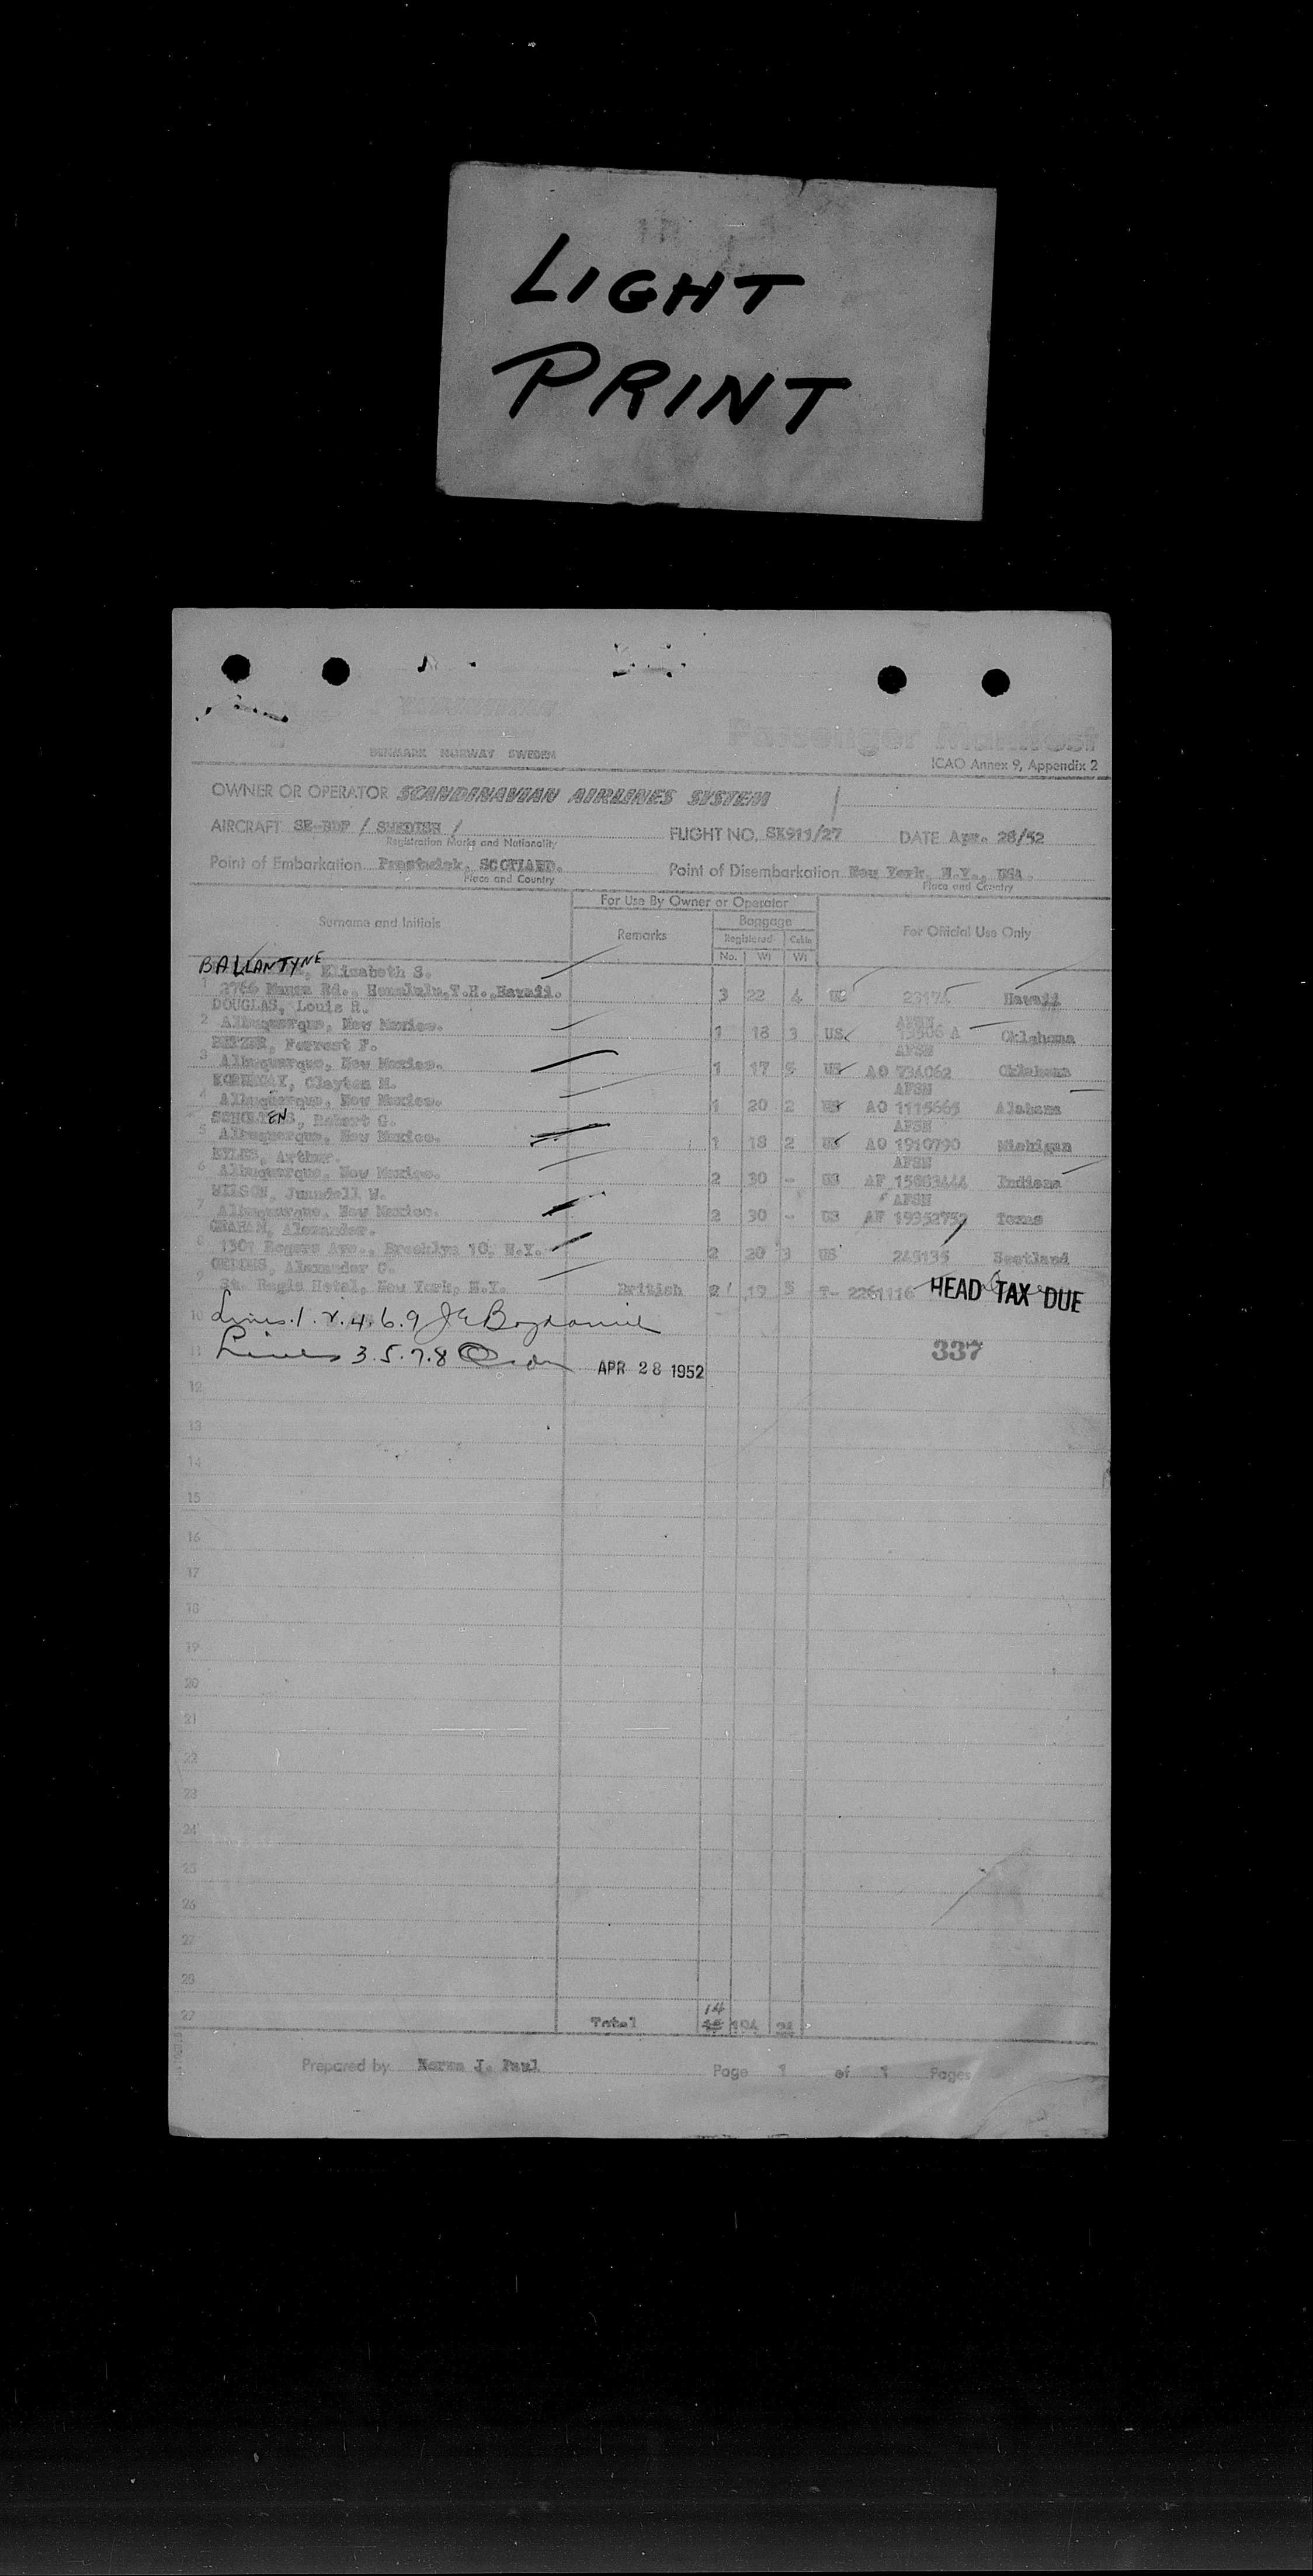 LIGHT
PRINT
DENMARK NORWAY SWEDEN
Passenger Manifest
ICAO Annex 9, Appendix 2
OWNER OR OPERATOR SCANDINAVIAN AIRLINES SYSTEM
AIRCRAFT SE-BDP / SWEDISH / FLIGHT NO. SK911/27 DATE Apr. 28/52
Registration Marks and Nationality
Point of Embarkation Prestwick, SCOTLAND. Point of Disembarkation New York, N.Y., USA.
Place and Country Place and Country
For Use By Owner or Operator
Surname and Initials Remarks Baggage For Official Use Only
Registered Cabin
No. Wt Wt
BALLANTYNE, Elizabeth S.
1 Rd., Honolulu, T.H., Hawaii. 3 22 4 US Hawaii
DOUGLAS, Louis R.
2 Albuquerque, New Mexico. 1 18 3 US Oklahoma
Forrest F. AFSN
3 Albuquerque, New Mexico. 1 17 5 US AO 734062 Oklahoma
KORNEGAY, Clayton M. AFSN
4 Albuquerque, New Mexico. 1 20 2 US AO 1115665 Alabama
EN, Robert G. AFSN
5 Albuquerque, New Mexico. 1 18 2 US AO 1910790 Michigan
Arthur. AFSN
6 Albuquerque, New Mexico. 2 30 - US AF 15003444 Indiana
WILSON, W. AFSN
7 Albuquerque, New Mexico. 2 30 - US AF 19352752 Texas
GRAHAM, Alexander.
8 1301 Rogers Ave., Brooklyn 10, N.Y. 2 20 3 US 245135 Scotland
Alexander C.
9 St. Regis Hotel, New York, N.Y. British 2 19 5 2261116 HEAD TAX DUE
10 Lines 1. 2. 4. 6. 9
11 Lines 3. 5. 7. 8 APR 28 1952 337
12
13
14
15
16
17
18
19
20
21
22
23
24
25
26
27
28
Total 14 194 24
Prepared by Norma J. Paul Page 1 of 1 Pages